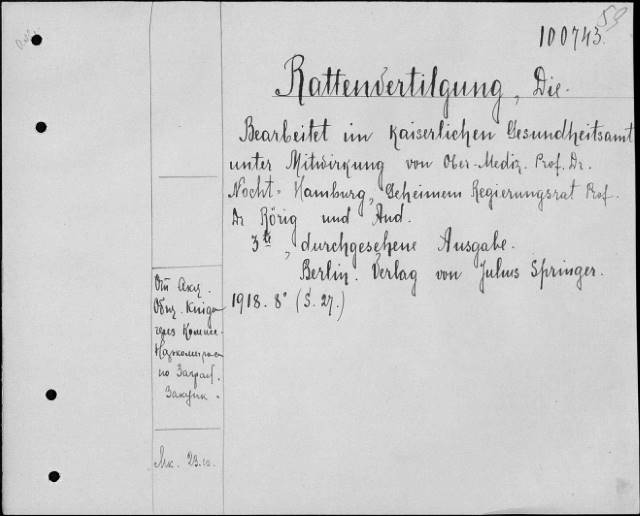 59
100743.
Rattenvertilgung, Die.
Bearbeitet im Kaiserlichen Gesundheitsamt
unter Mitwirkung von Ober-Mediz. Prof. Dr.
Nocht-Hamburg, Geheimem Regierungsrat Prof.
Dr Rörig und And.
3te, durchgesehene Ausgabe.
Berlin. Verlag von Julius Springer.
1918. 8° (S. 27.)
От Акц.
Общ. Книга
через Комис.
по Загран.
Закупк.
Мк. 23.